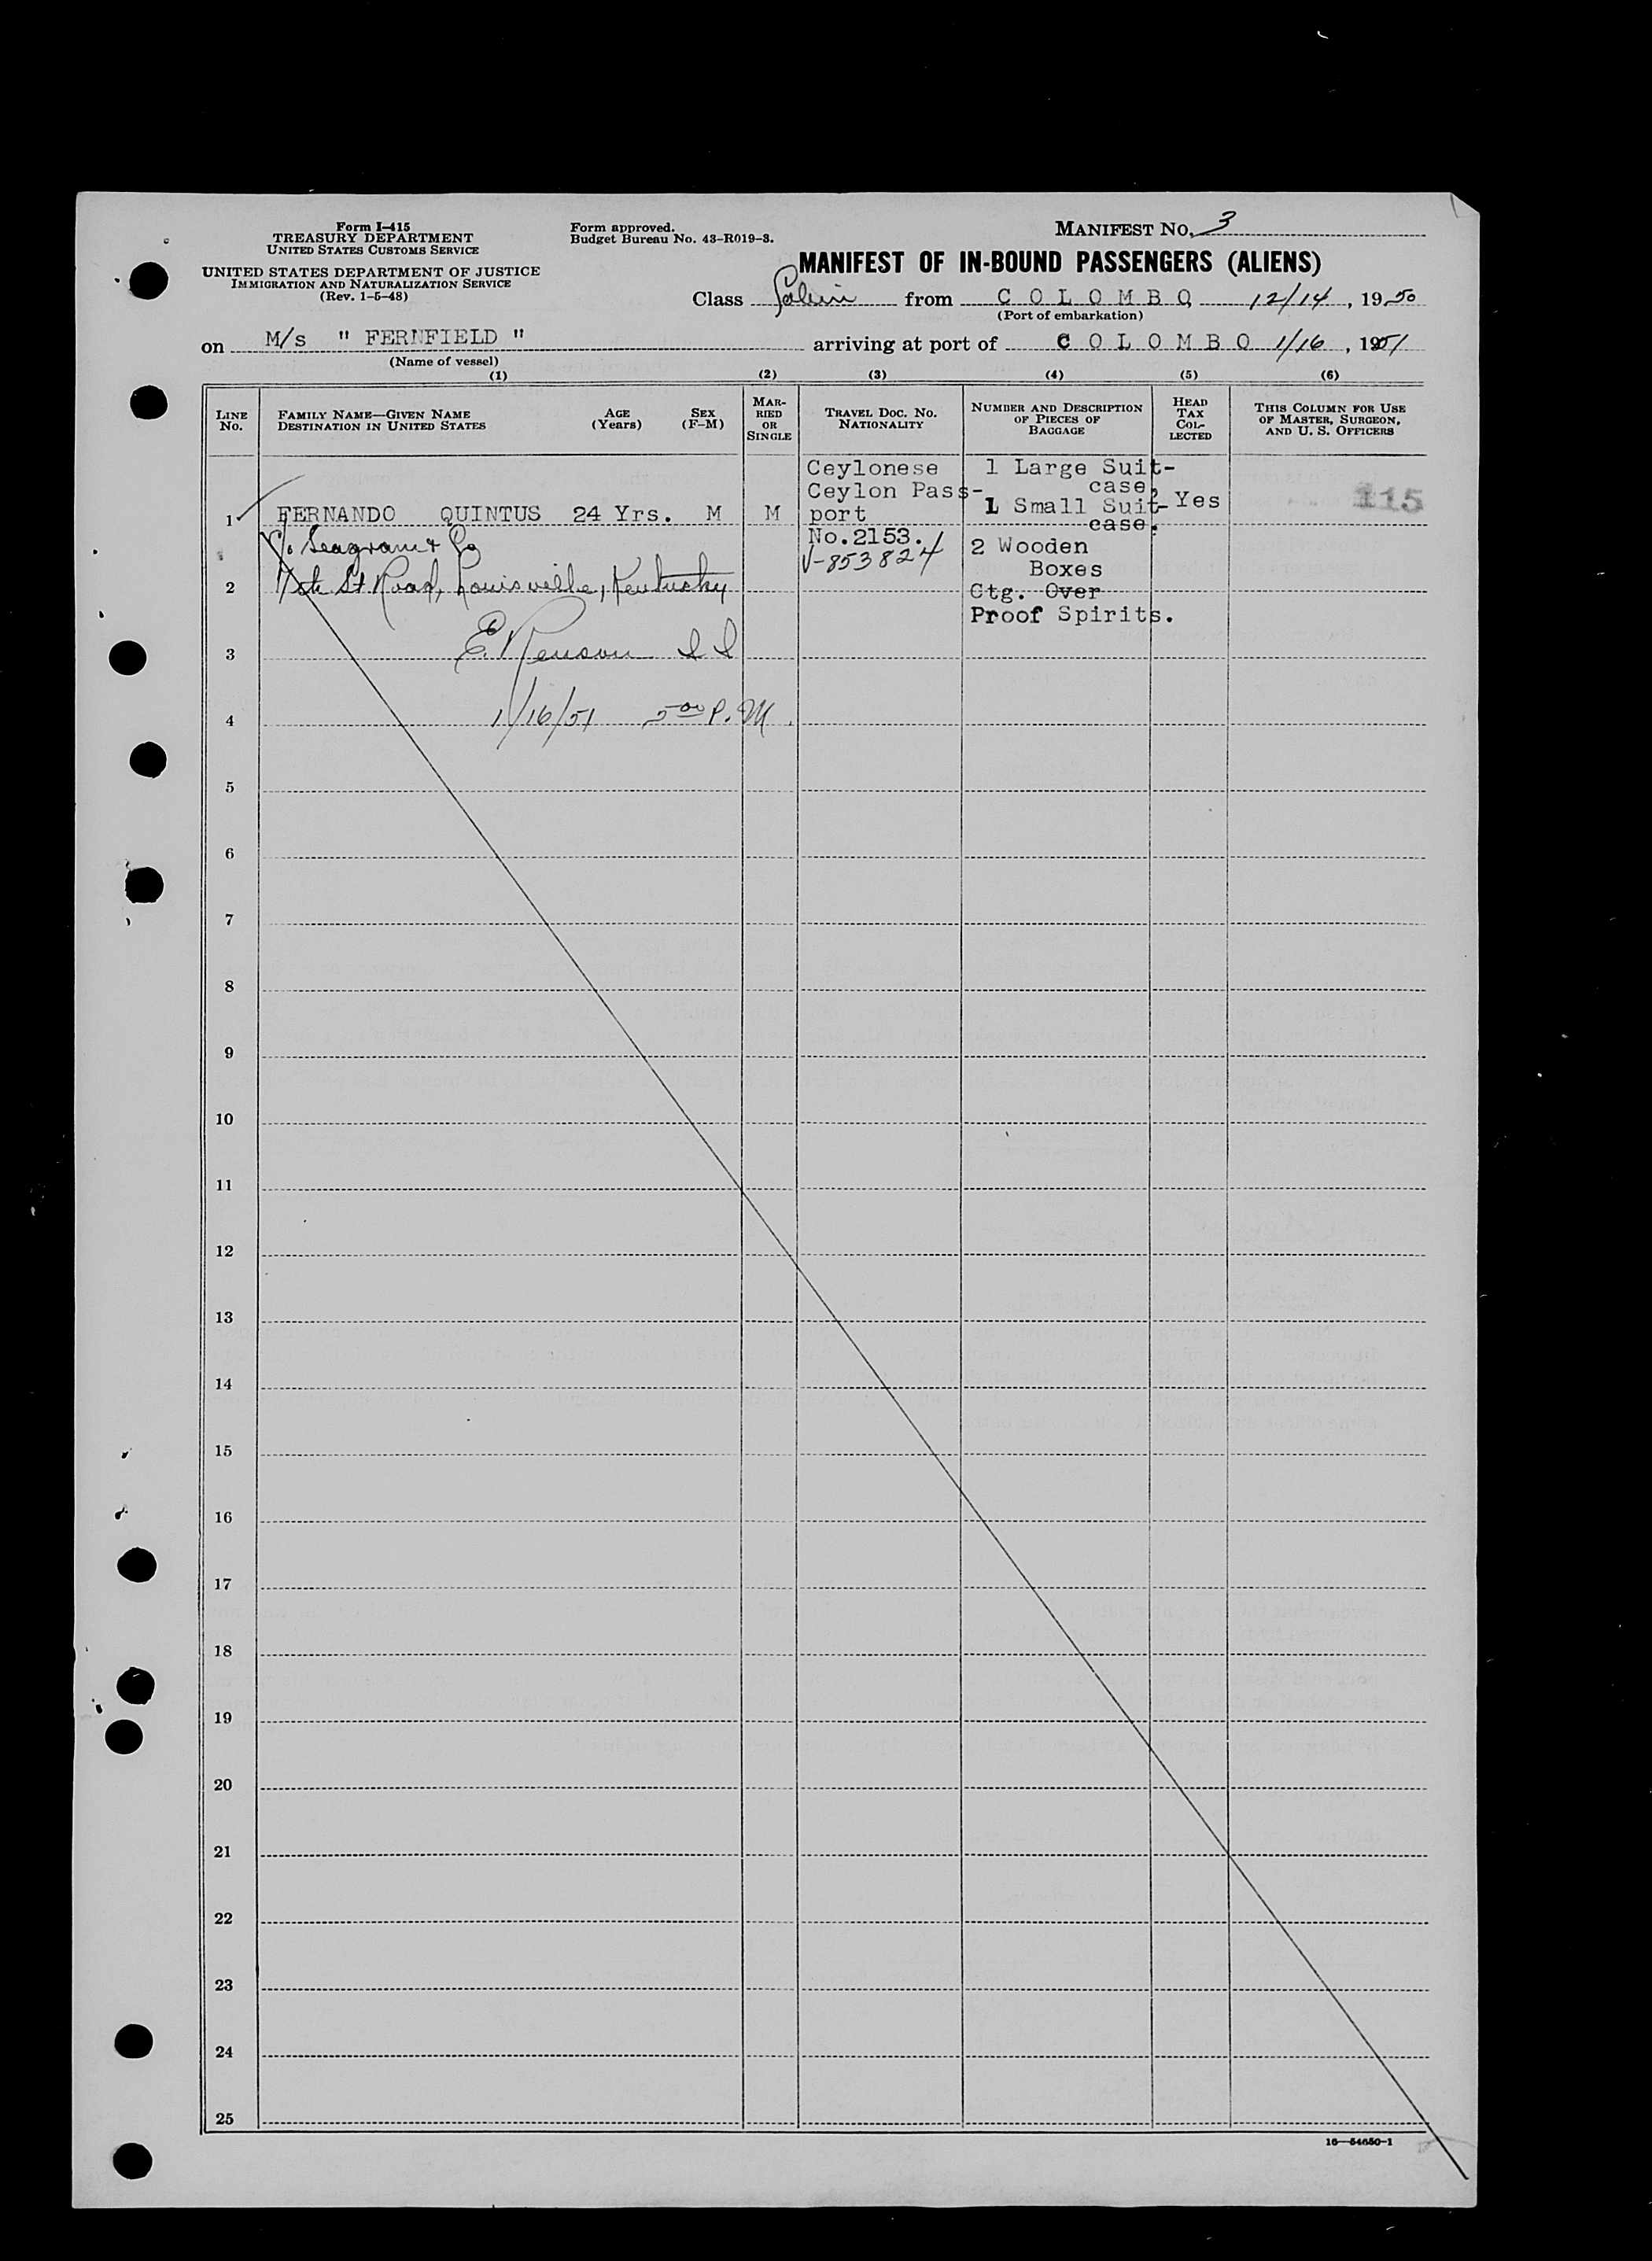 Form I-415
TREASURY DEPARTMENT
UNITED STATES CUSTOMS SERVICE
UNITED STATES DEPARTMENT OF JUSTICE
IMMIGRATION AND NATURALIZATION SERVICE
(Rev. 1-5-48)
Form approved.
Budget Bureau No. 43-R019-3.
MANIFEST NO. 3
MANIFEST OF IN-BOUND PASSENGERS (ALIENS)
Class Cabin from C O L O M B O 12/14, 1950
(Port of embarkation)
on M/s " FERNFIELD " arriving at port of C O L O M B O 1/16, 1951
(Name of vessel)
(1) (2) (3) (4) (5) (6)
LINE No.
FAMILY NAME—GIVEN NAME
DESTINATION IN UNITED STATES
AGE (Years)
SEX (F-M)
MARRIED OR SINGLE
TRAVEL DOC. NO.
NATIONALITY
NUMBER AND DESCRIPTION
OF PIECES OF
BAGGAGE
HEAD TAX COLLECTED
THIS COLUMN FOR USE
OF MASTER, SURGEON,
AND U. S. OFFICERS
1 FERNANDO QUINTUS 24 Yrs. M M
Ceylonese
Ceylon Pass-
port
No.2153.
V-853824
1 Large Suit-
case,
1 Small Suit-
case.
2 Wooden
Boxes
Ctg. Over
Proof Spirits.
Yes
115
c/o Seagram & Co
2 7th St Road, Louisville, Kentucky
3 E. Renson I I
4 1/16/51 5 00 P. M.
5
6
7
8
9
10
11
12
13
14
15
16
17
18
19
20
21
22
23
24
25
16—54650-1